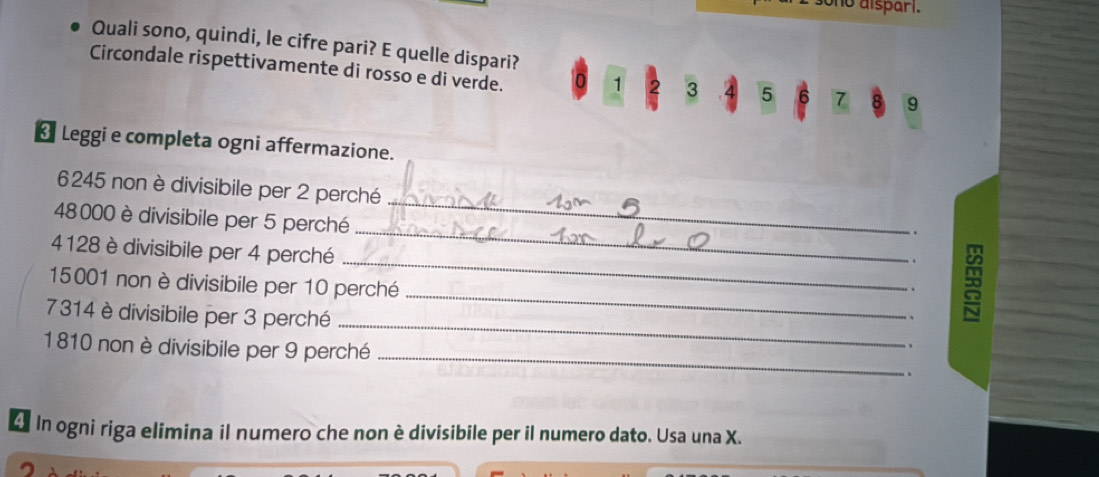 sono dispari.
• Quali sono, quindi, le cifre pari? E quelle dispari?
Circondale rispettivamente di rosso e di verde.
0 1 2 3 4 5 6 7 8 9
3 Leggi e completa ogni affermazione.
6245 non è divisibile per 2 perché con 5.
48000 è divisibile per 5 perché con lo 0.
4128 è divisibile per 4 perché .
15001 non è divisibile per 10 perché .
7314 è divisibile per 3 perché .
1810 non è divisibile per 9 perché .
ESERCIZI
4 In ogni riga elimina il numero che non è divisibile per il numero dato. Usa una X.